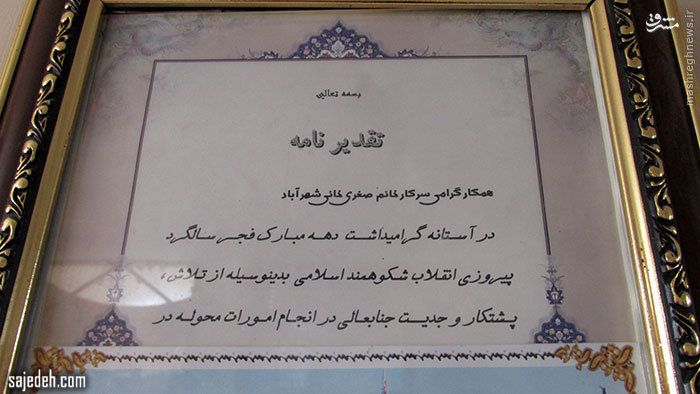 مشرق
mashreghnews.ir
بسمه تعالیی
تقدیر نامه
همکار گرامی سرکار خانم صغری خانی شهرآباد
در آستانه گرامیداشت دهه مبارک فجر سالگرد
پیروزی انقلاب شکوهمند اسلامی بدینوسیله از تلاش،
پشتکار و جدیت جنابعالی در انجام امورات محوله در
sajedeh.com